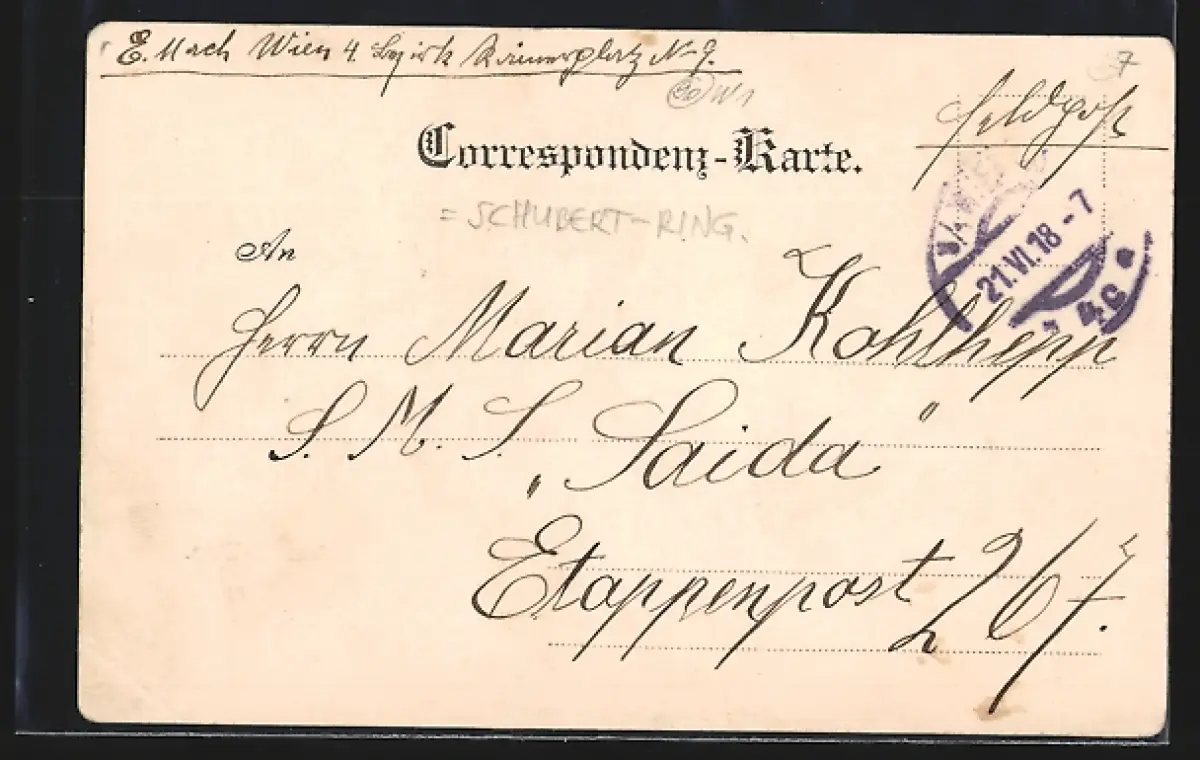 E. Mach Wien 4. Bezirk Rainerplatz No 9.
7
W1
Feldpost
Correspondenz-Karte.
= SCHUBERT-RING.
21.VI.18-7
* 4c *
An
Herrn Marian Kohlhepp
S. M. S. „Saida"
Etappenpost 267.